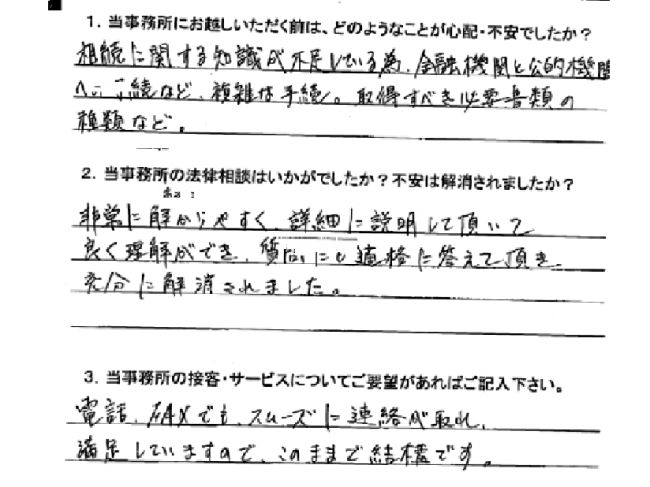 1. 当事務所にお越しいただく前は、どのようなことが心配・不安でしたか？
相続に関する知識が不足している為、金融機関と公的機関
への手続など、複雑な手続。取得すべき必要書類の
種類など。
2. 当事務所の法律相談はいかがでしたか？不安は解消されましたか？
非常に解かりやすく、詳細に説明して頂いて
良く理解ができ、質問にも適格に答えて頂き
充分に解消されました。
3. 当事務所の接客・サービスについてご要望があればご記入下さい。
電話、FAXでも、スムーズに連絡が取れ、
満足していますので、このままで結構です。